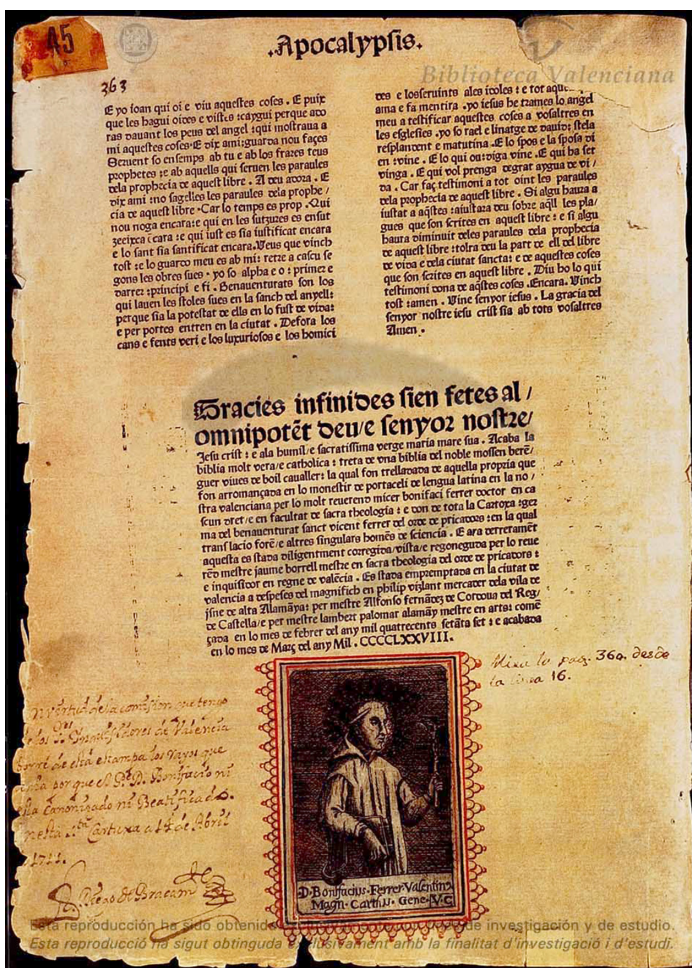 45
.Apocalypsis.
Biblioteca Valenciana
363
E yo ioan qui oi e viu aquestes coses . E puix
que les hagui oides e vistes :caygui perque ado
ras dauant los peus del angel :qui mostraua a
mi aquestes coses.E dix ami:guarda nou faces
Seruent so ensemps ab tu e ab los frares teus
prophetes :e ab aquells qui seruen les paraules
dela prophecia de aquest libre . A deu adora . E
dix ami :no sagelles les paraules dela prophe /
cia de aquest libre .Car lo temps es prop .Qui
nou noga encara:e qui en les sutzures es ensut
zeeixca encara :e qui iust es sia iustificat encara
e lo sant sia santificat encara.Ueus que vinch
tost :e lo guardo meu es ab mi: retre a cascu se
gons les obres sues . yo so alpha e o : primer e
darrer :principi e fi . Benauenturats son los
qui lauen les stoles sues en la sanch del anyell:
perque sia la potestat de ells en lo fust de vida:
e per portes entren en la ciutat . Defora los
cans e fents veri e los luxuriosos e los homici
des e los seruints ales idoles : e tot
ama e fa mentira .yo iesus he trames lo angel
meu a testificar aquestes coses a vosaltres en
les esglesies .yo so rael e linatge de dauid: stela
resplandent e matutina .E lo spos e la sposa di
en :vine . E lo qui ou:diga vine .E qui ha set
vinga . E qui vol prenga degrat aygua de vi /
da . Car faç testimoni a tot oint les paraules
dela prophecia de aquest libre . Si algu haura a
iustat a aq̃stes :aiustara deu sobre aq̃ll les pla/
gues que son scrites en aquest libre : e si algu
haura diminuit deles paraules dela prophecia
de aquest libre :tolra deu la part de ell del libre
de vida e dela ciutat sancta: e de aquestes coses
que son scrites en aquest libre . Diu ho lo qui
testimoni dona de aq̃stes coses .Encara. Uinch
tost :amen . Uine senyor iesus . La gracia del
senyor nostre iesu crist sia ab tots vosaltres
Amen .
Gracies infinides sien fetes al /
omnipotẽt deu/e senyor nostre/
Jesu crist : e ala humil/e sacratissima verge maria mare sua . Acaba la
biblia molt vera/e catholica : treta de vna biblia del noble mossen berẽ/
guer viues de boil caualler: la qual fon trelladada de aquella propria que
fon arromançada en lo monestir de portaceli de lengua latina en la no /
stra valenciana per lo molt reuerend micer bonifaci ferrer doctor en ca
scun dret/e en facultat de sacra theologia : e don de tota la Cartoxa :ger
ma del benauenturat sanct vicent ferrer del orde de pricadors :en la qual
translacio forẽ/e altres singulars homẽs de sciencia . E ara derreramẽt
aquesta es stada diligentment corregida/vista/e regoneguda per lo reue
rẽd mestre jaume borrell mestre en sacra theologia del orde de pricadors :
e inquisidor en regne de valẽcia . Es stada empremptada en la ciutat de
valencia a despeses del magnifich en philip vizlant mercader dela vila de
jsne de alta Alamãya: per mestre Alfonso fernãdez de Cordoua del Reg/
de Castella/e per mestre lambert palomar alamãy mestre en arts: comẽ
çada en lo mes de febrer del any mil quatrecents setãta set : e acabada
en lo mes de Març del any Mil . CCCCLXXVIII.
Mira lo pag. 360. desde
la linea 16.
En virtud de la comision que tengo
de los Sres. Inquisidores de Valencia
borré de esta estampa los rayos que
tenia por que el Pe. D. Bonifacio ni
esta Canonizado ni Beatificado.
Cartuxa a 14 de Abril
1711.
D. Bonifacius. Ferrer. Valentin9
Magn. Carthus. Gene. V. C
Esta reproducción ha sido obtenida de investigación y de estudio.
Esta reproducció ha sigut obtinguda exclusivament amb la finalitat d'investigació i d'estudi.